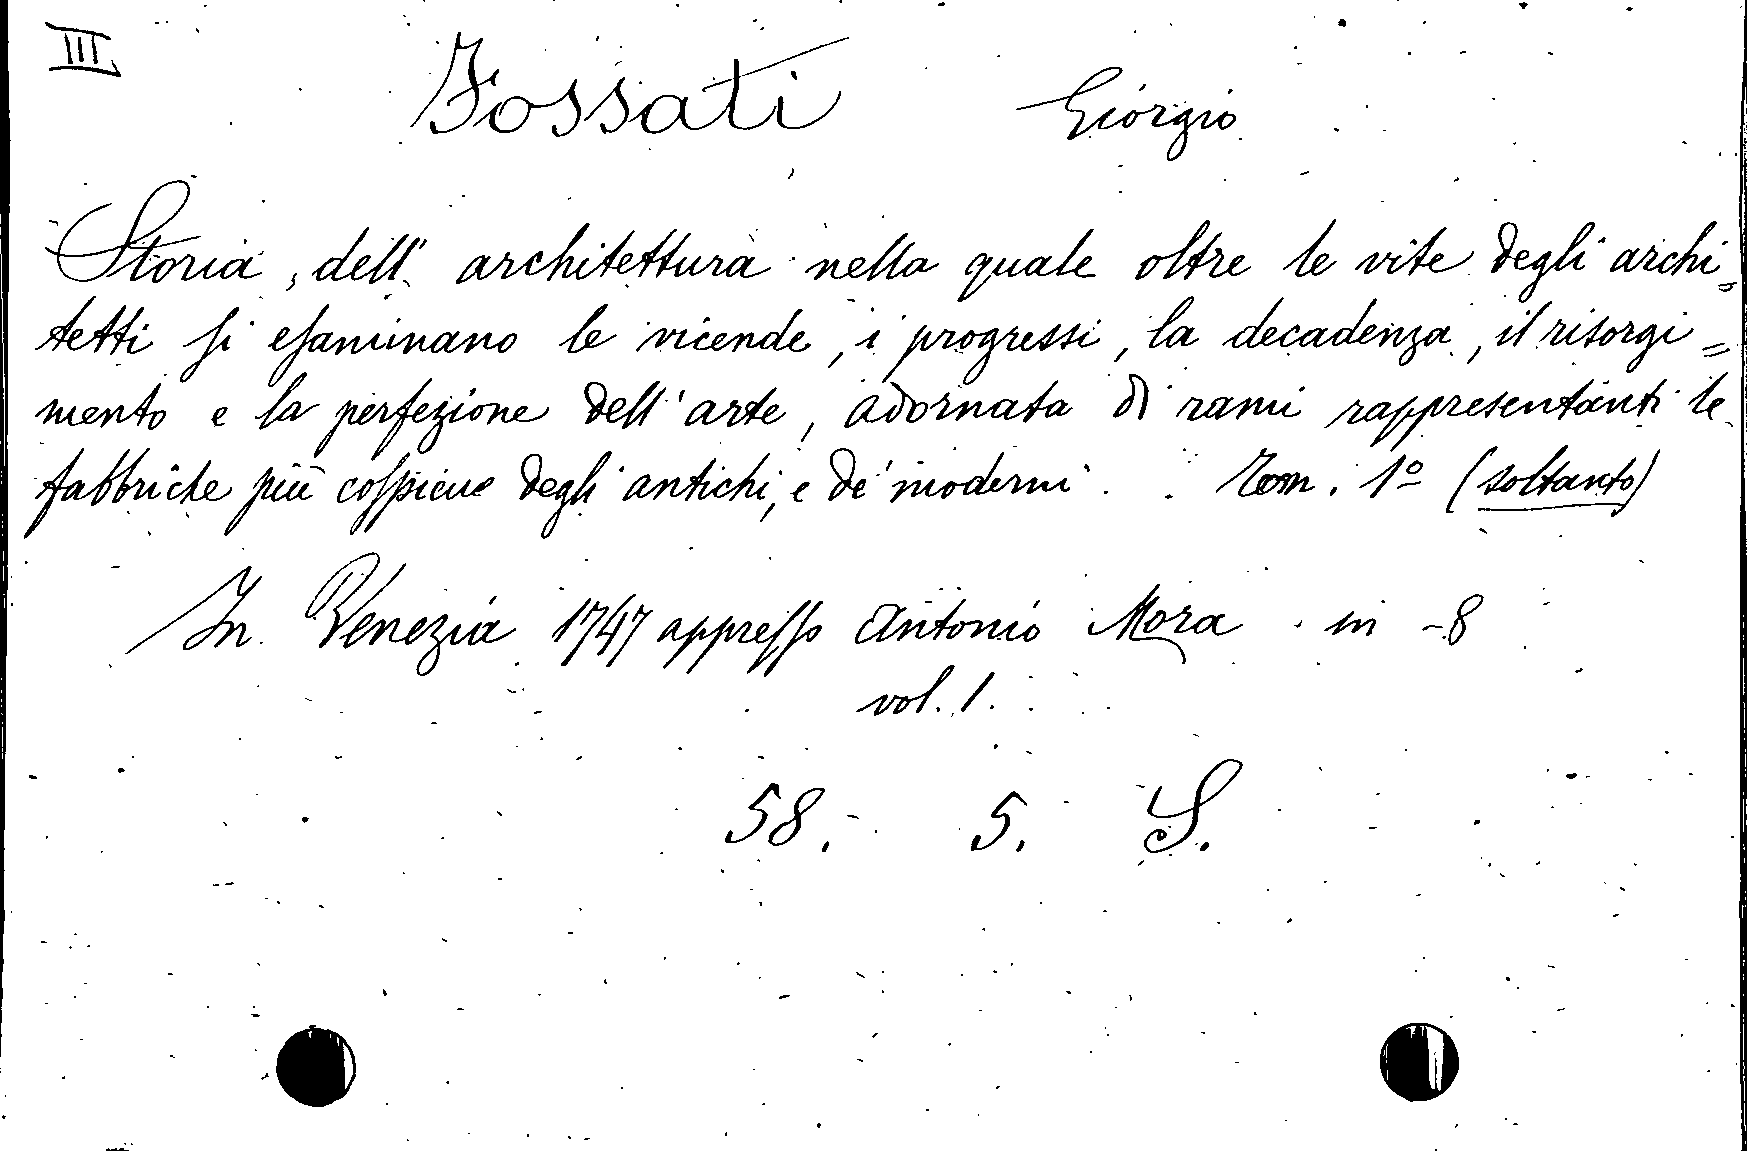 III
Fossati Giorgio
Storia dell'architettura nella quale oltre le vite degli archi=
tetti ſi eſaminano le vicende, i progressi, la decadenza, il risorgi=
mento e la perfezione dell'arte, adornata di rami rappresentanti le
fabbriche più coſpicue degli antichi, e de' moderni. Tom. 1º (soltanto)
In Venezia 1747 appreſſo Antonio Mora in -8
vol. 1.
58. 5. S.